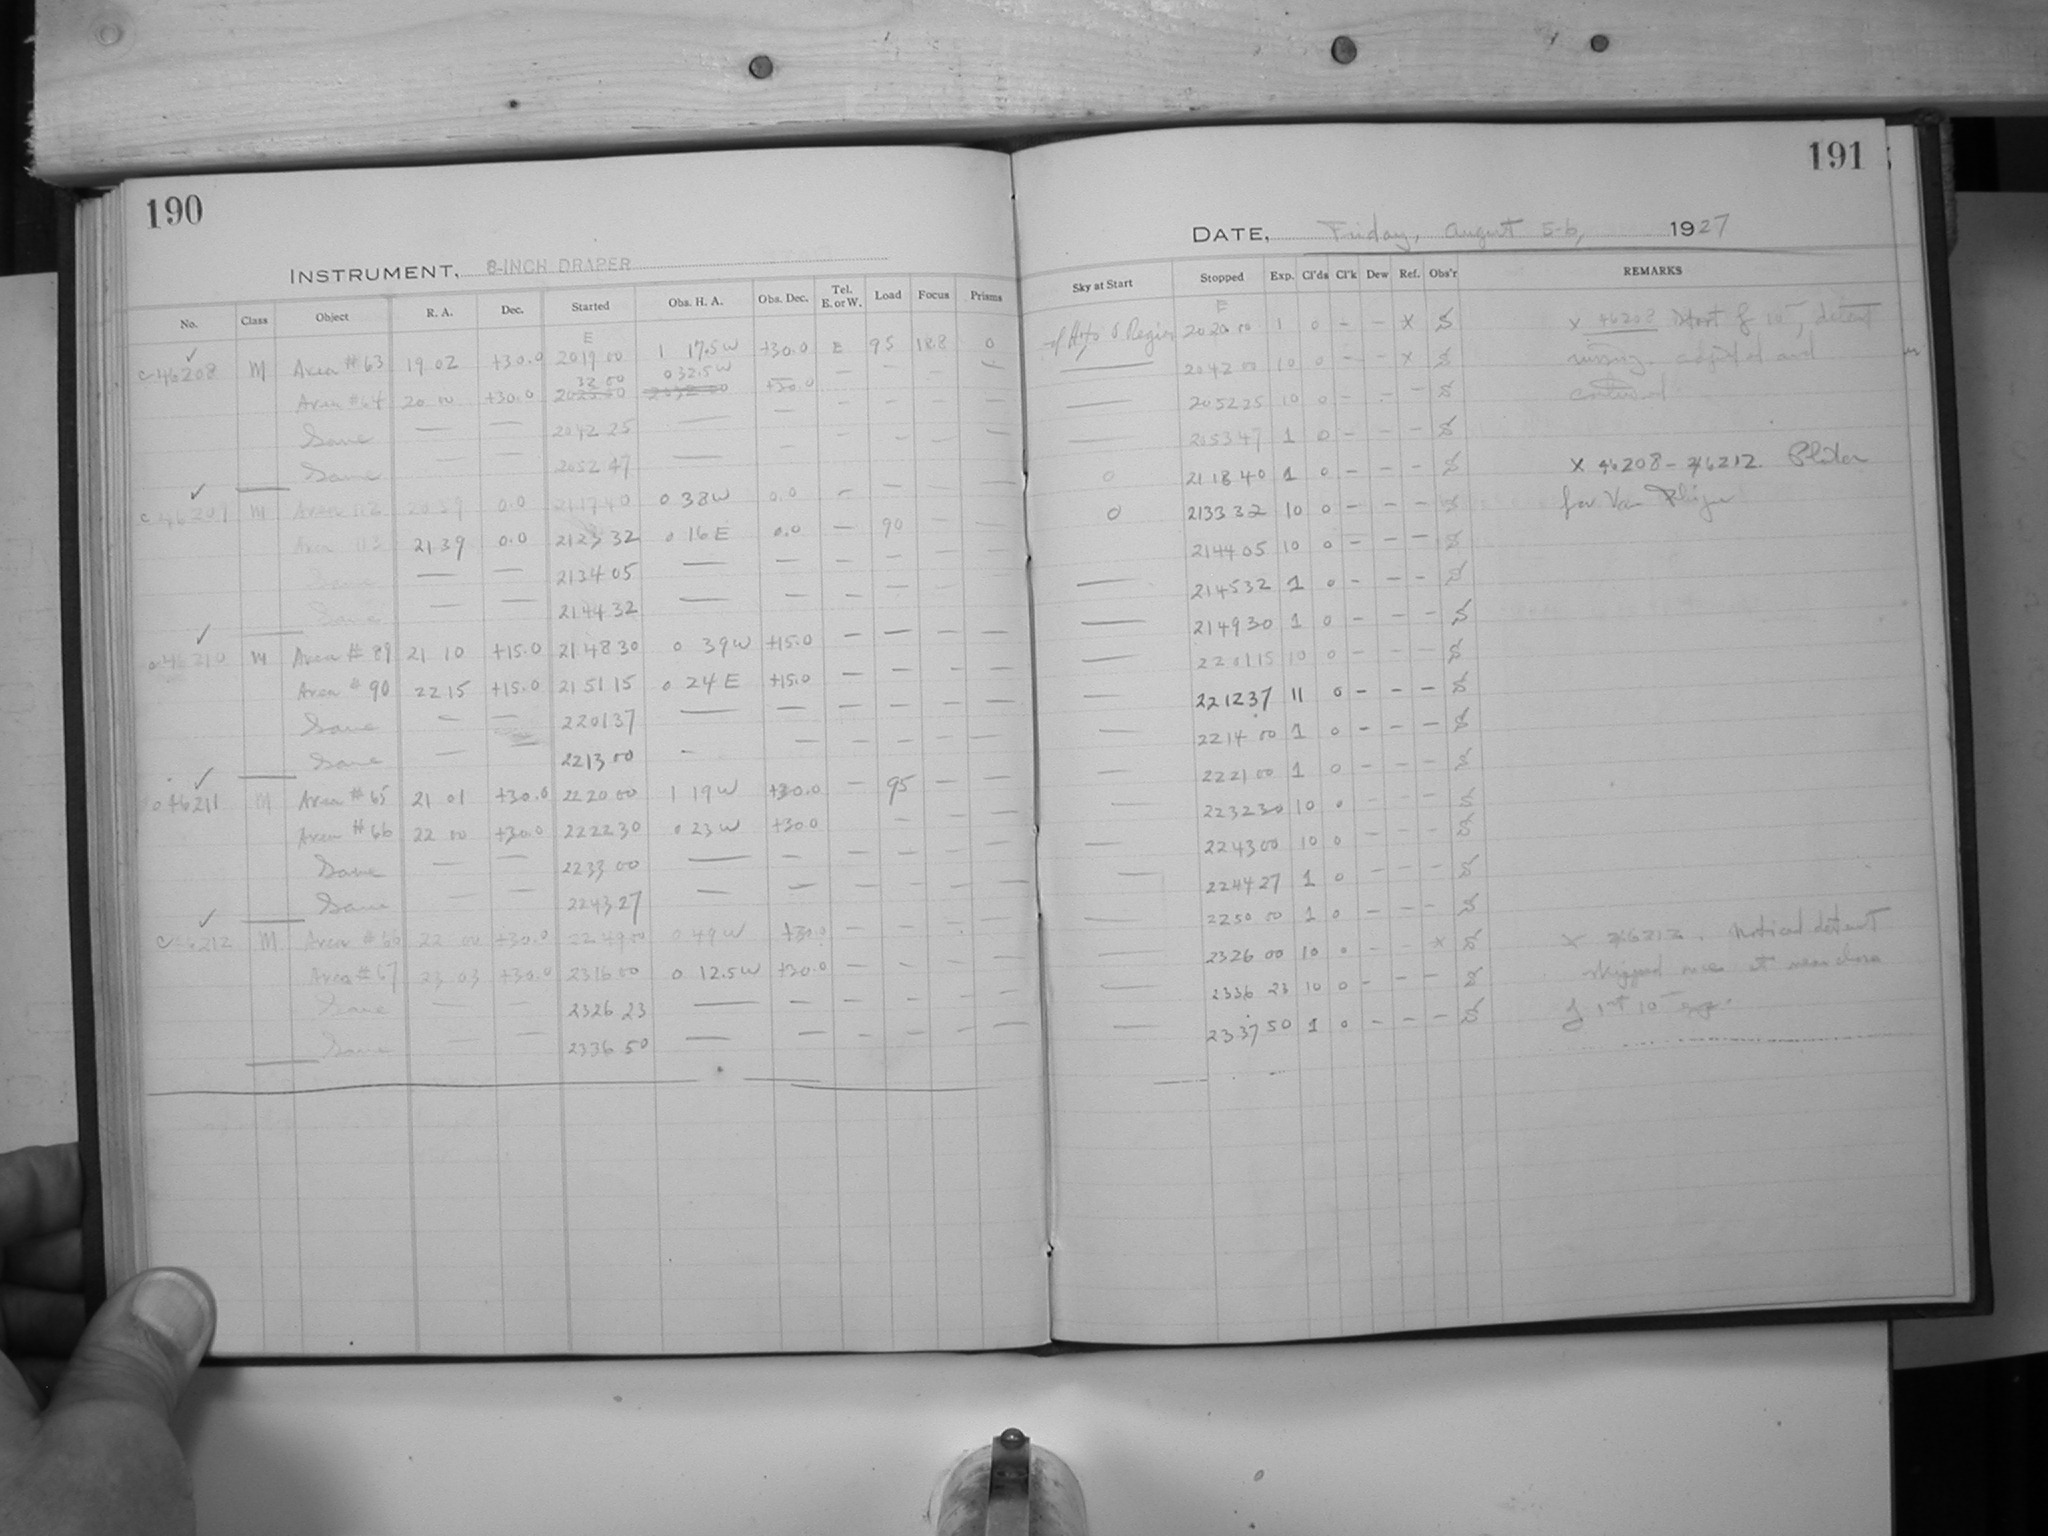 190
INSTRUMENT, 8-INCH DRAPER
No. Class Object R. A. Dec. Started Obs. H. A. Obs. Dec. Tel. E. or W. Load Focus Prisms
E
✓
c 46208 M Area #63 19 02 +30.0 20 19 00 1 17.5 W +30.0 E 95 18.8 0
32 00 0 32.5 W
Area #64 20 00 +30.0 +30.0 — — — —
Same — — 20 42 25 — — — — — —
Same — — 20 52 47 — — — — — —
✓
c 46209 M Area 112 20 39 0.0 21 17 40 0 38 W 0.0 — — — —
Area 113 21 39 0.0 21 23 32 0 16 E 0.0 — 90 — —
Same — — 21 34 05 — — — — — —
Same — — 21 44 32 — — — — — —
✓
c 46210 M Area # 89 21 10 +15.0 21 48 30 0 39 W +15.0 — — — —
Area # 90 22 15 +15.0 21 51 15 0 24 E +15.0 — — — —
Same — — 22 01 37 — — — — — —
Same — — 22 13 00 — — — — — —
✓
c 46211 M Area # 65 21 01 +30.0 22 20 00 1 19 W +30.0 — 95 — —
Area # 66 22 00 +30.0 22 22 30 0 23 W +30.0 — — —
Same — — 22 33 00 — — — — — —
Same — — 22 43 27 — — — — — —
✓
c 46212 M Area #66 22 00 +30.0 22 49 00 0 49 W +30.0 — — — —
Area #67 23 03 +30.0 23 16 00 0 12.5 W +30.0 — — — —
Same — — 23 26 23 — — — — — —
Same — — 23 36 50 — — — — — —
191
DATE, Friday, August 5-6, 1927
Sky at Start Stopped Exp. Cl'ds Cl'k Dew Ref. Obs'r REMARKS
E
20 20 00 1 0 — — X S X 46208 Start of 10m, detent
— 20 42 00 10 0 — — X S missing. adjusted and
— 20 52 25 10 0 — — — S continued
— 20 53 47 1 0 — — — S
0 21 18 40 1 0 — — — S X 46208 – 46212. Plates
0 21 33 32 10 0 — — — S for Van Rhijn
21 44 05 10 0 — — — S
— 21 45 32 1 0 — — — S
— 21 49 30 1 0 — — — S
— 22 01 15 10 0 — — — S
— 22 12 37 11 0 — — — S
— 22 14 00 1 0 — — — S
— 22 21 00 1 0 — — — S
— 22 32 30 10 0 — — — S
— 22 43 00 10 0 — — — S
— 22 44 27 1 0 — — — S
— 22 50 00 1 0 — — — S
— 23 26 00 10 0 — — X S X 46212. Noticed detent
— 23 36 23 10 0 — — — S skipped once at near close
— 23 37 50 1 0 — — — S of 1st 10m